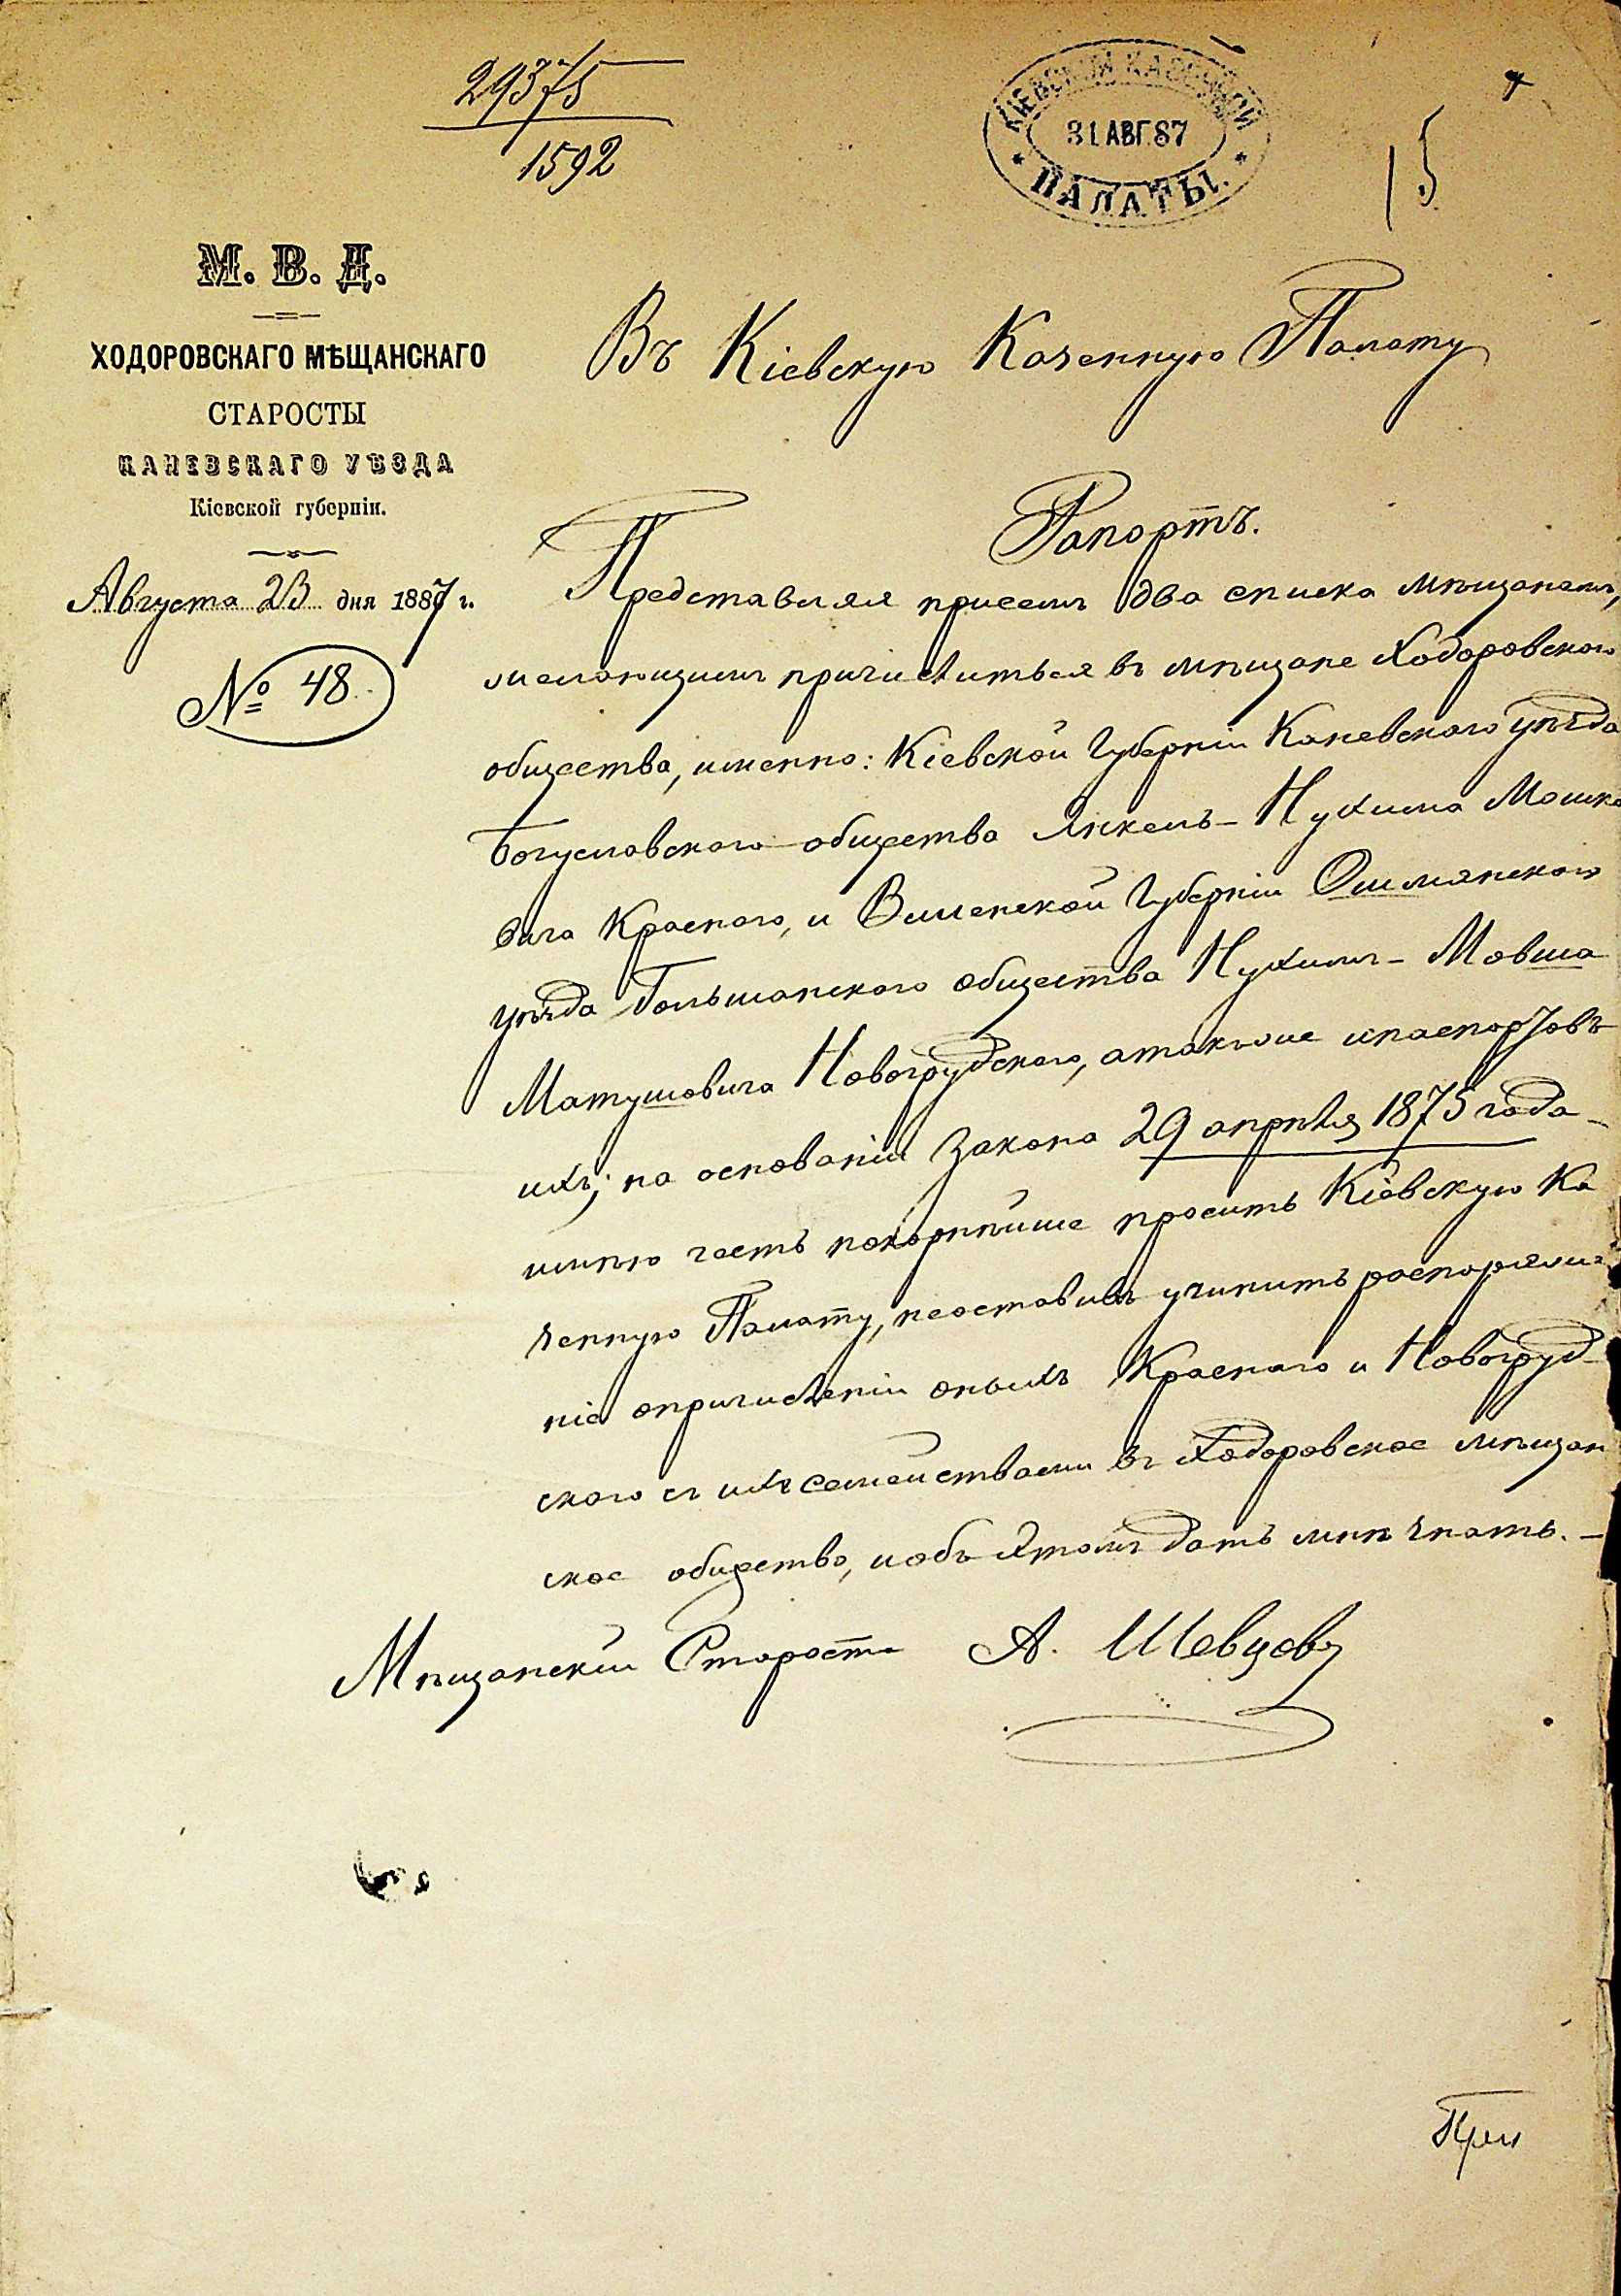 29375
1592
КІЕВСКОЙ КАЗЕННОЙ
31 АВГ.87
ПАЛАТЫ.
15
М. В. Д.
ХОДОРОВСКАГО МѢЩАНСКАГО
СТАРОСТЫ
КАНЕВСКАГО УѢЗДА
Кіевской губерніи.
Августа 23 дня 1887 г.
№ 48
Въ Кіевскую Казенную Палату
Рапортъ.
Представляя присемъ два списка мѣщанамъ,
желающимъ причислиться въ мѣщане Ходоровскаго
общества, именно: Кіевской Губерніи Каневскаго уѣзда
Богуславскаго общества Янкель-Нухима Мошко
вича Краснаго, и Виленской Губерніи Ошмянскаго
уѣзда Гольшанскаго общества Нухимъ-Мовша
Матушовича Новогрудскаго, атакъже ипаспортовъ
ихъ; на основаніи закона 29 апрѣля 1875 года
имѣю честь покорнѣйше просить Кіевскую Ка
зенную Палату, неоставить учинить распоряже
ніе опричисленіи оныхъ Краснаго и Новогруд-
скаго съ ихъ семействами въ Ходоровское мѣщан
ское общество, иобъ этомъ дать мнѣ знать.-
Мѣщанскій Староста А. Шевцовъ
При